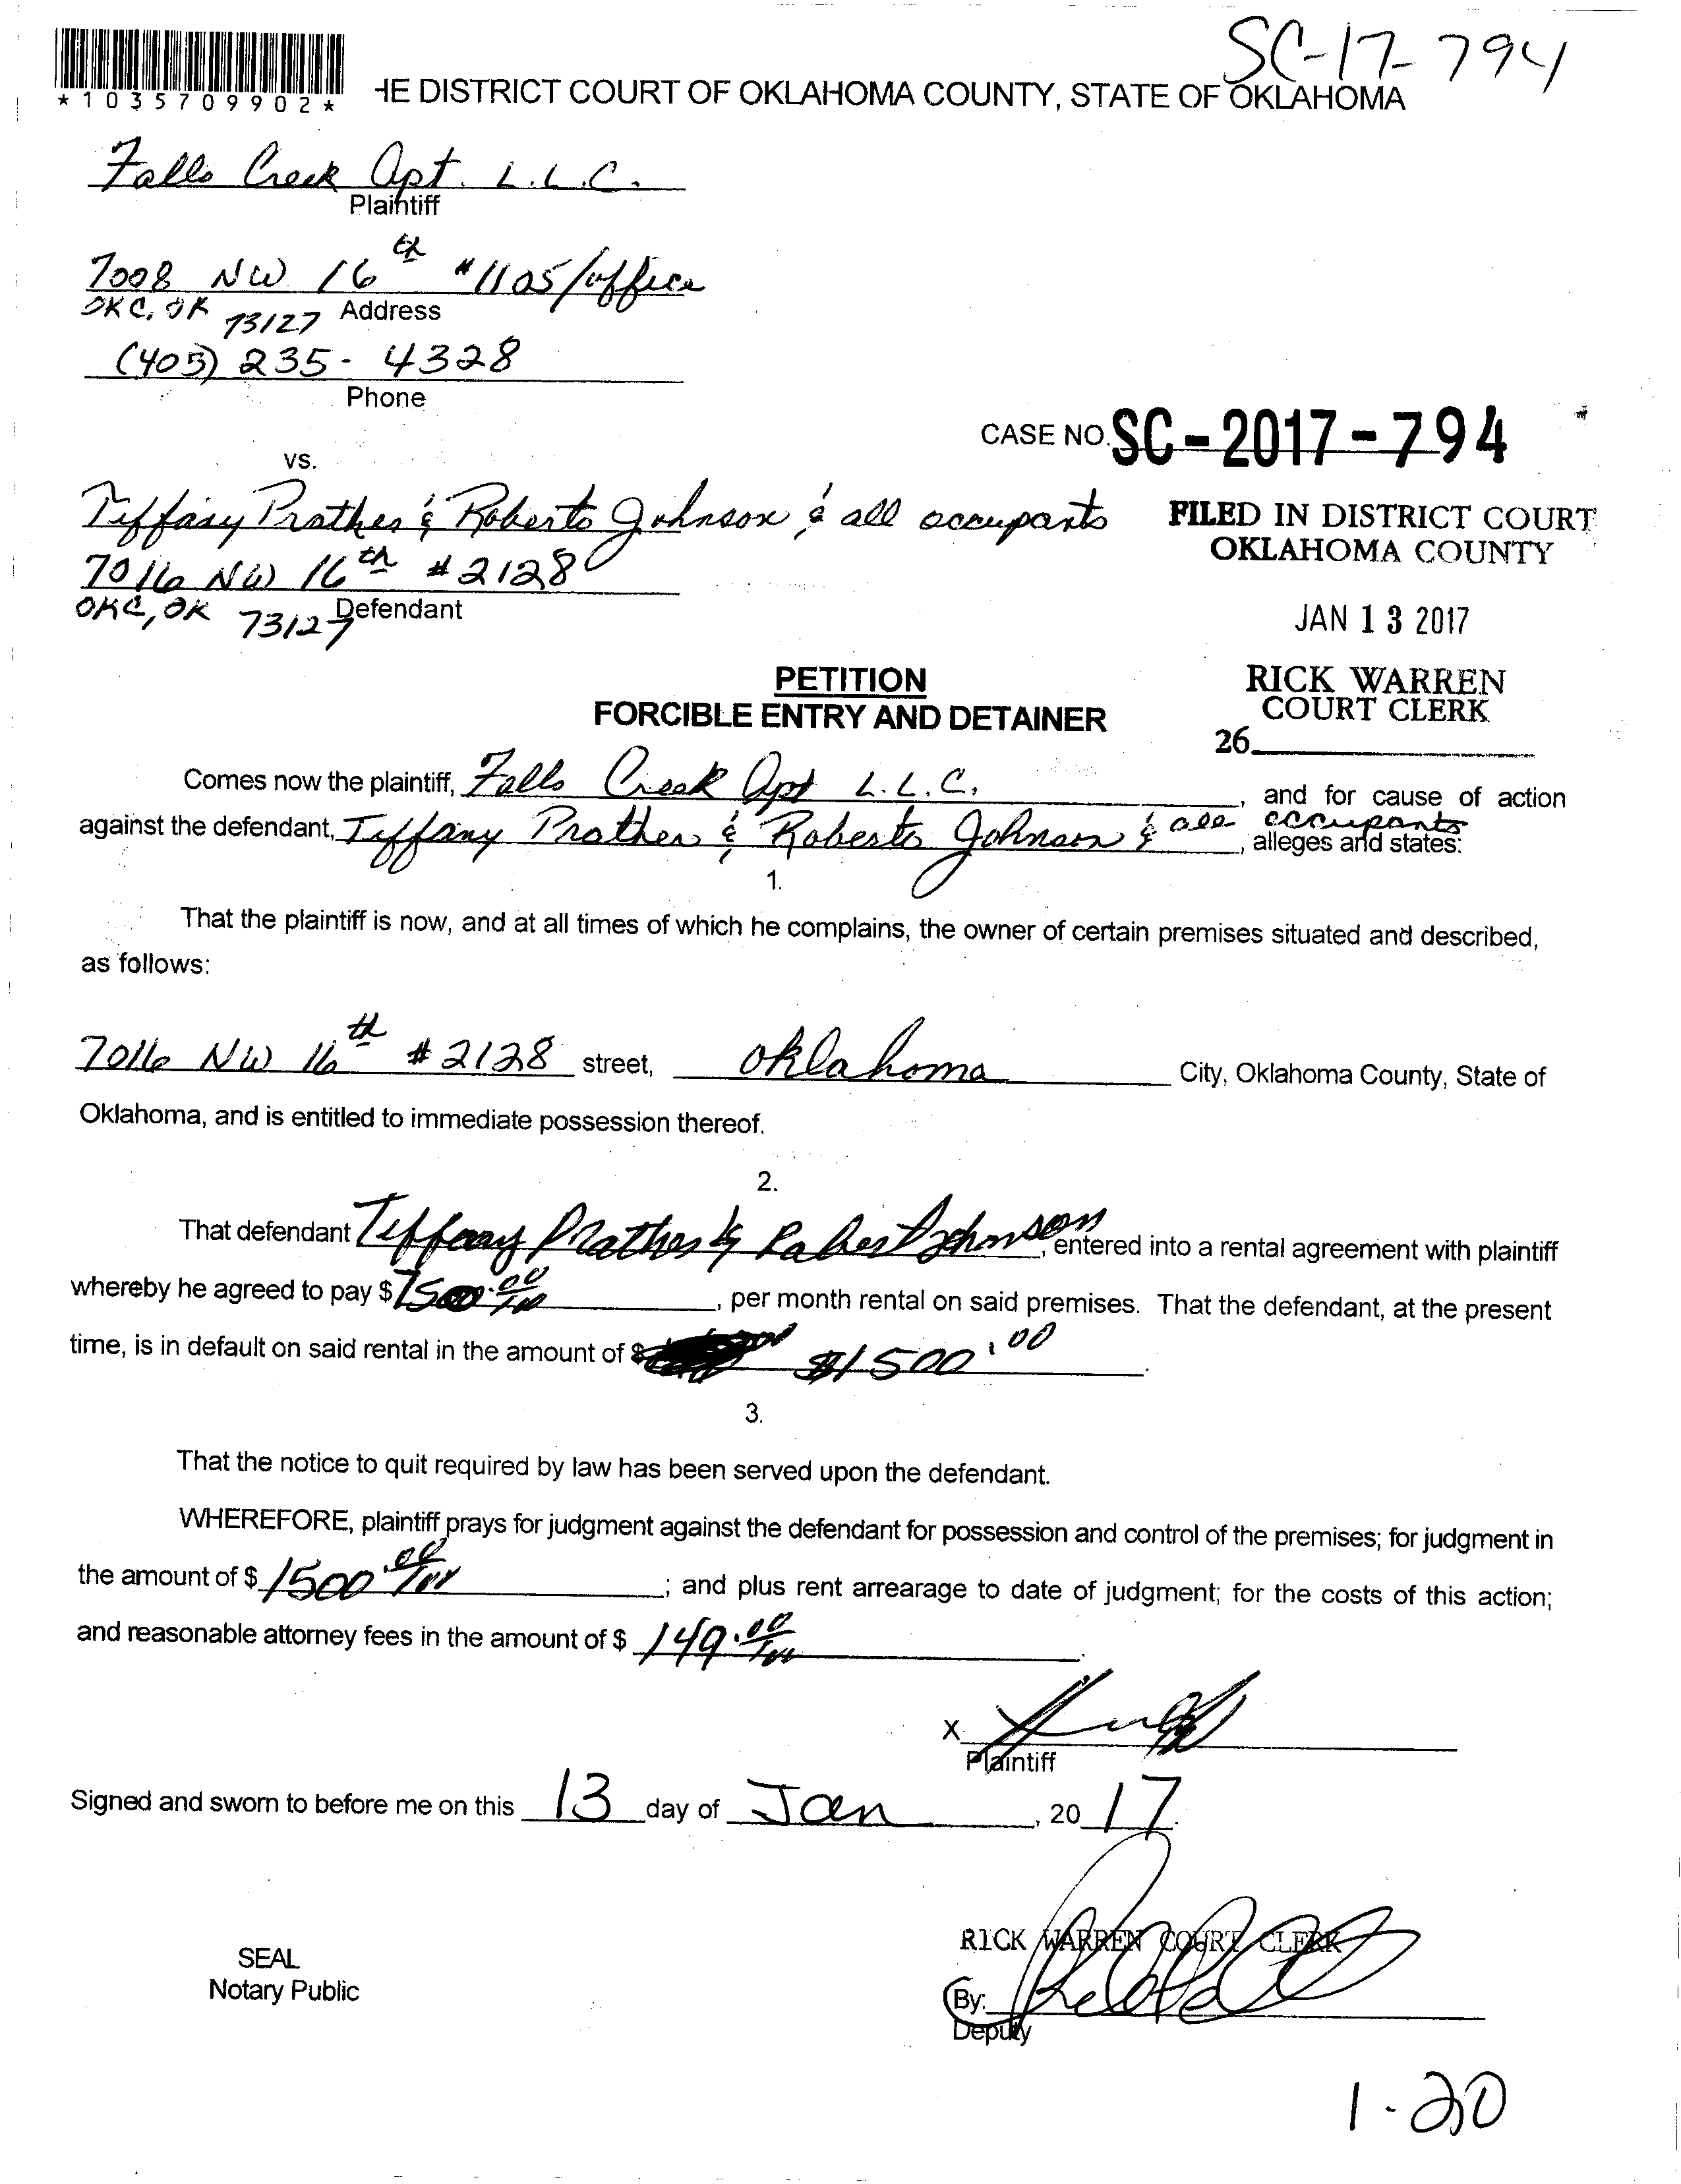 SC-17-794
*1035709902*
HE DISTRICT COURT OF OKLAHOMA COUNTY, STATE OF OKLAHOMA
Falls Creek Apt. L.L.C.
Plaintiff
7008 NW 16th #1105/office
OKC, OK 73127 Address
(405) 235-4328
Phone
CASE NO. SC-2017-794
vs.
Tiffany Prather & Roberto Johnson & all occupants
FILED IN DISTRICT COURT
OKLAHOMA COUNTY
7016 NW 16th #2128
OKC, OK 73127 Defendant
JAN 13 2017
PETITION
FORCIBLE ENTRY AND DETAINER
RICK WARREN
COURT CLERK
26
Comes now the plaintiff, Falls Creek Apt L.L.C., and for cause of action
against the defendant, Tiffany Prather & Roberto Johnson & all occupants, alleges and states:
1.
That the plaintiff is now, and at all times of which he complains, the owner of certain premises situated and described,
as follows:
7016 NW 16th #2128 street, Oklahoma City, Oklahoma County, State of
Oklahoma, and is entitled to immediate possession thereof.
2.
That defendant Tiffany Prather & Robert Johnson, entered into a rental agreement with plaintiff
whereby he agreed to pay $ , per month rental on said premises. That the defendant, at the present
time, is in default on said rental in the amount of $ $1500.00.
3.
That the notice to quit required by law has been served upon the defendant.
WHEREFORE, plaintiff prays for judgment against the defendant for possession and control of the premises; for judgment in
the amount of $ 1500.00/100; and plus rent arrearage to date of judgment; for the costs of this action;
and reasonable attorney fees in the amount of $ 149.00/100.
X
Plaintiff
Signed and sworn to before me on this 13 day of Jan, 2017.
RICK WARREN COURT CLERK
SEAL
Notary Public
By:
Deputy
1-20